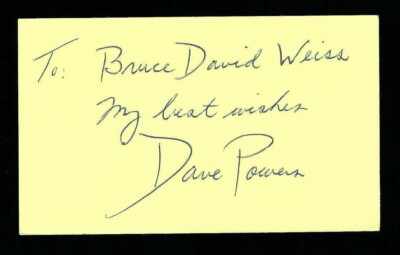 To: Bruce David Weiss
My best wishes
Dave Powers